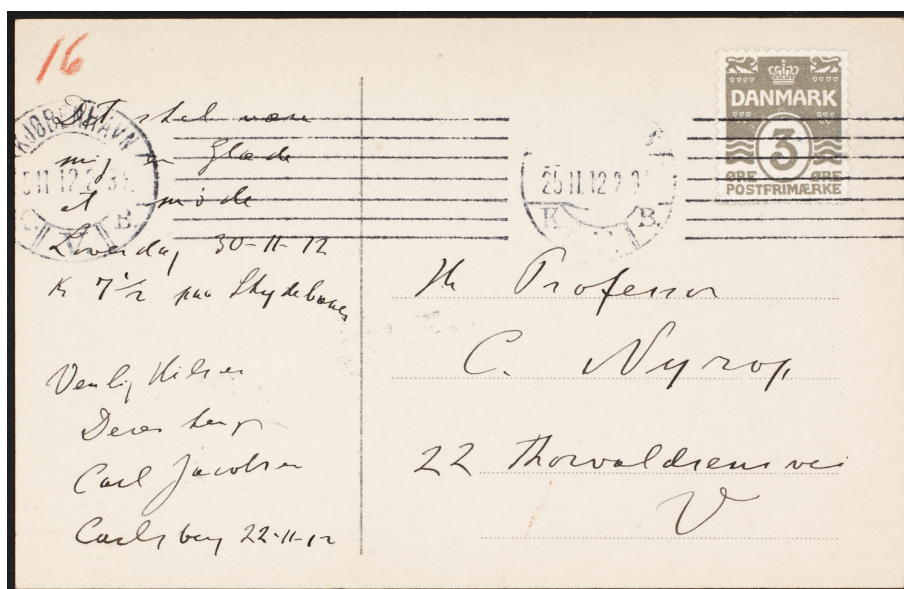 16
Det skal være
mig en Glæde
at møde
Löverdag 30-11-12
K 7 1/2 paa Skydebanen
Venlig Hilsen
Deres heng
Carl Jacobsen
Carlsberg 22-11-12
KJØBENHAVN
25 11.12 2-3
K. B
DANMARK
3
ØRE ØRE
POSTFRIMÆRKE
Hr Professor
C. Nyrop
22 Thorvaldsensvei
V